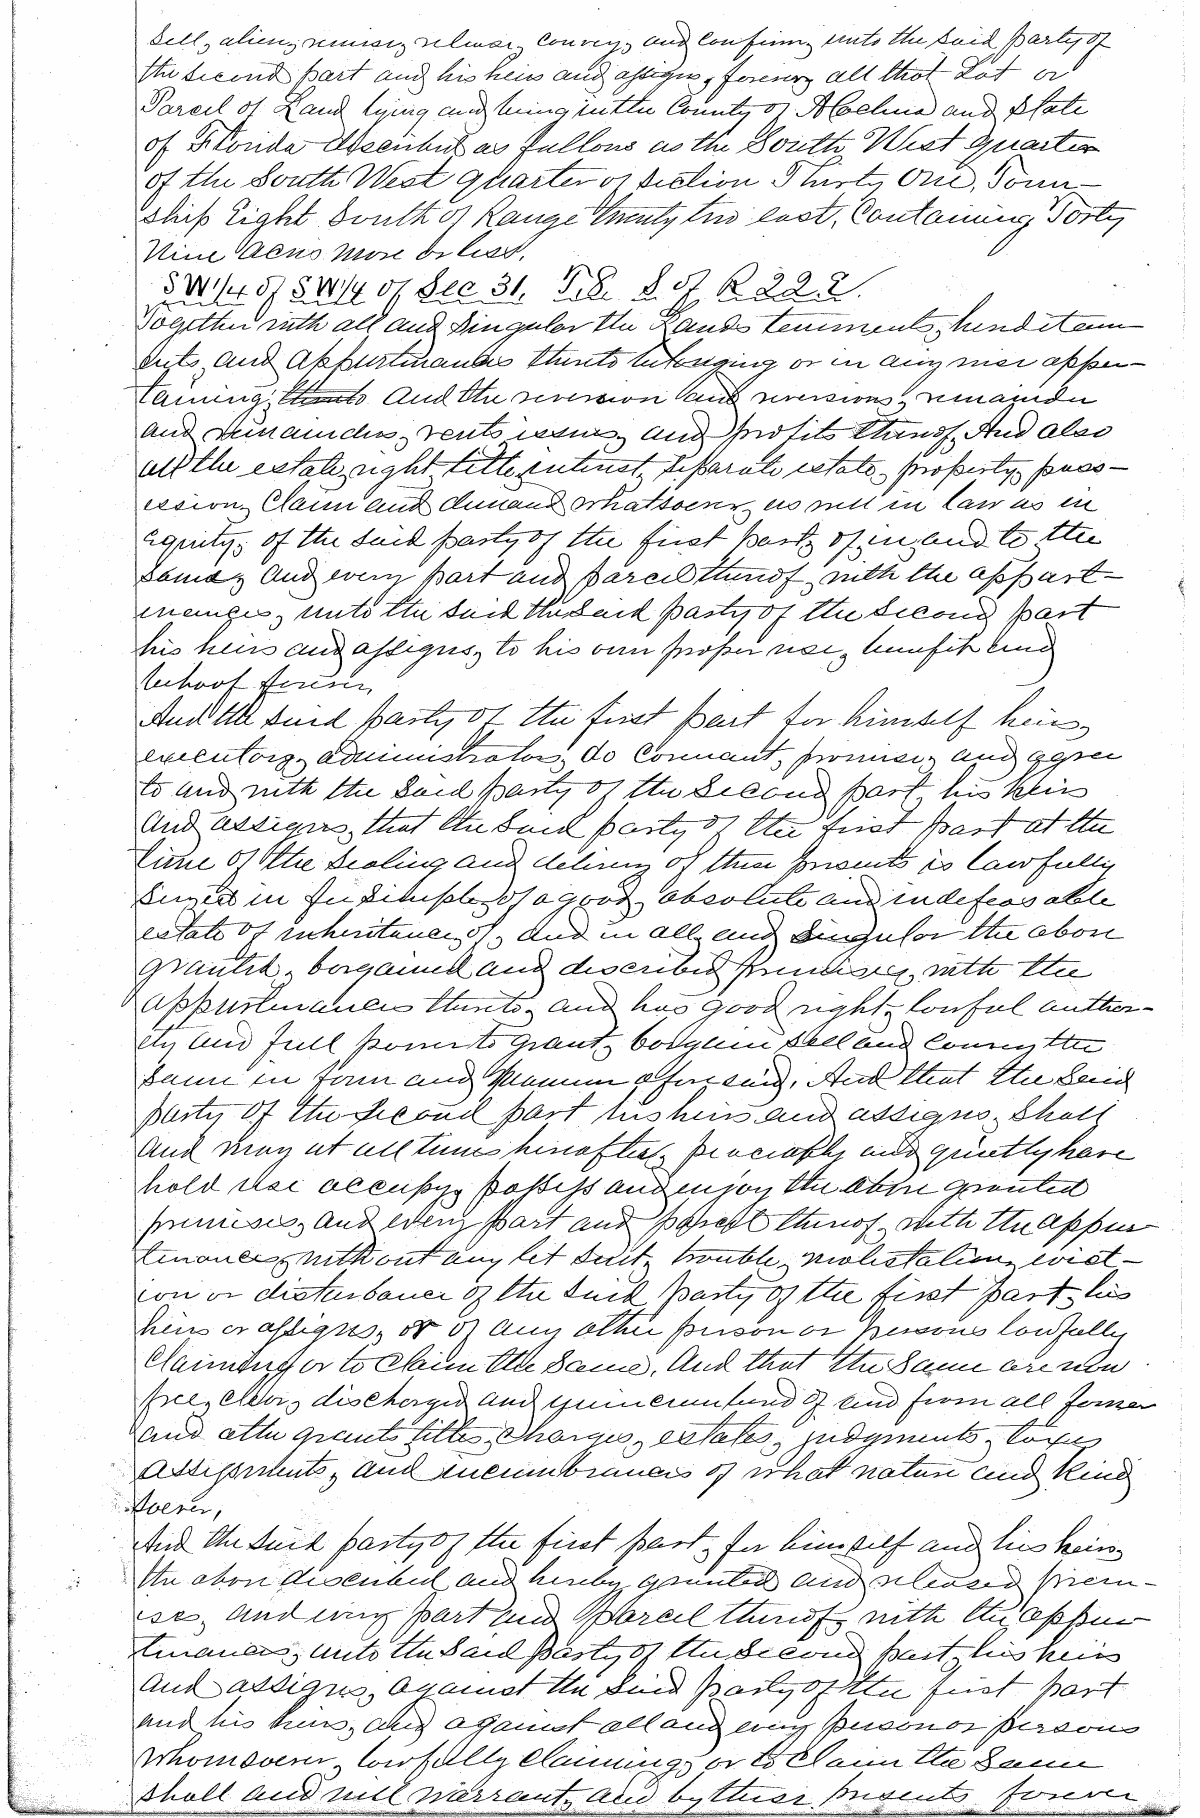 Sell, alien, remise, release, convey, and confirm, unto the said party of
the second part and his heirs and assigns, forever, all that Lot or
Parcel of Land lying and being in the County of Alachua and State
of Florida described as follows as the South West quarter
of the South West quarter of Section Thirty One, Town-
ship Eight South of Range Twenty two east, Containing Forty
Nine Acres more or less.
SW1/4 of SW1/4 of Sec 31, T.8. S of R 22.E.
Together with all and Singular the Lands tenements, heriditam
ents, and appurtenances thereto belonging or in any wise apper-
taining, thereto And the reversion and reversions, remainder
and remainders, rents issues, and profits thereof, And also
all the estate, right, title, interest, separate estate, property, poss-
ession, Claim and demand whatsoever, as well in law as in
equity, of the said party of the first part, of, in, and to the
same, and every part and parcel thereof, with the appurt-
enances, unto the said the said party of the second part
his heirs and assigns, to his own proper use, benefit and
behoof forever,
And the said party of the first part for himself heirs,
executors, administrators, do covenant, promise, and agree
to and with the said party of the second part, his heirs
and assigns, that the said party of the first part at the
time of the sealing and delivery of these presents is lawfully
seized in fee simple, of a good, absolute and indefeasable
estate of inheritance, of, and in all, and singular the above
granted, bargained and described premises, with the
appurtenances thereto, and has good right, lawful author-
ity and full power to grant, bargain sell and convey the
same in form and manner aforesaid, And that the said
party of the second part his heirs and assigns, shall
and may at all times hereafter, peaceably and quietly have
hold use occupy, possess and enjoy the above granted
premises, and every part and parcel thereof, with the appur
tenances, without any let suit, trouble, molestation, evict-
ion or disturbance of the said party of the first part, his
heirs or assigns, or of any other person or persons lawfully
claiming or to claim the same, And that the same are now
free, clear, discharged and unincumbered of and from all former
and other grants titles, charges, estates, judgments, taxes
assessments, and incumbrances of what nature and kind
soever,
And the said party of the first part, for himself and his heirs
the above described and hereby granted and released prem-
ises, and every part and Parcel thereof, with the appur
tenances, unto the said party of the second part, his heirs
and assigns, against the said party of the first part
and his heirs, and against all and every person or persons
whomsoever, lawfully claiming, or to claim the same
shall and will warrant, and by these presents forever